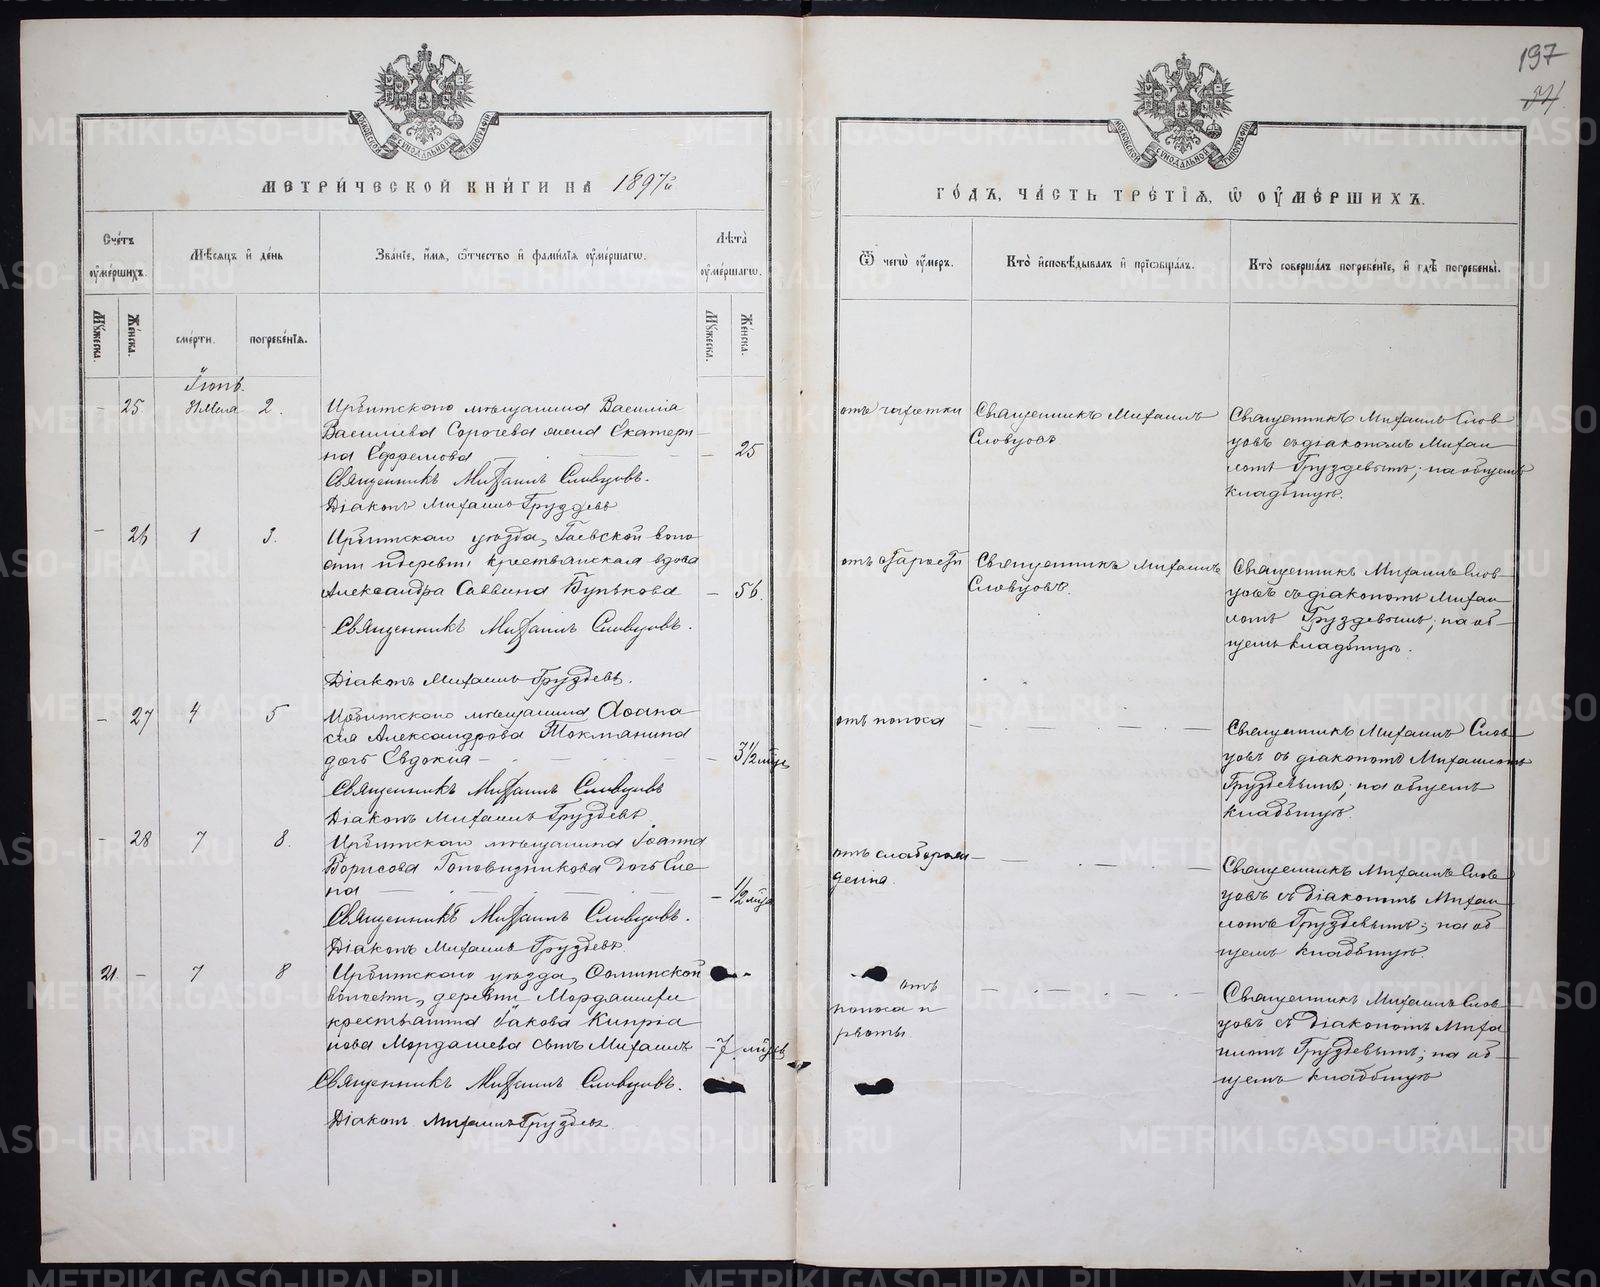 197
МЕТРИ́ЧЕСКОЙ КНИ́ГИ НА 1897й
ГО́ДЪ, ЧА́СТЬ ТРЕ́ТІѦ, Ѡ҆ ОУ҆МЕ́РШИХЪ.
МОСКОВСКОЙ СИНОДАЛЬНОЙ ТИПОГРАФІИ
МОСКОВСКОЙ СИНОДАЛЬНОЙ ТИПОГРАФІИ
Сче́тъ оу҆ме́ршихъ.
Мѣ́сяцъ и҆ де́нь
Зва́нїе, и҆́мѧ, ѻ҆́тчество и҆ фами́лїѧ оу҆ме́ршагѡ.
Лѣ́та оу҆ме́ршагѡ.
Ѿ чегѡ̀ оу҆́меръ.
Кто̀ и҆сповѣ́дывалъ и҆ прїѡбща́лъ.
Кто̀ соверша́лъ погребе́нїе, и҆ гдѣ̀ погребены̀.
Мꙋ́жеска.
Же́нска.
сме́рти.
погребе́нїѧ.
Мꙋ́жеска.
Же́нска.
Іюнь.
25. 31 Мая 2. Ирбитскаго мѣщанина Василія
Васильева Сорочева жена Екатери
на Ефремова 25
Священникъ Михаилъ Словцовъ.
Діаконъ Михаилъ Груздевъ
отъ чахотки
Священникъ Михаилъ
Словцовъ
Священникъ Михаилъ Слов
цовъ съ діакономъ Михаи
ломъ Груздевымъ; на общемъ
кладбищѣ.
26 1 3. Ирбитскаго уѣзда, Гаевской воло
сти и деревни крестьянская вдова
Александра Саввина Бунькова 56.
Священникъ Михаилъ Словцовъ.
Діаконъ Михаилъ Груздевъ.
отъ старости
Священникъ Михаилъ
Словцовъ.
Священникъ Михаилъ Слов
цовъ съ діакономъ Михаи
ломъ Груздевымъ; на об
щемъ кладбищѣ.
27 4 5 Ирбитскаго мѣщанина Аѳана
сія Александрова Токманина
дочь Евдокія 3½ мѣс
Священникъ Михаилъ Словцовъ
Діаконъ Михаилъ Груздевъ
отъ поноса
Священникъ Михаилъ Слов
цовъ съ діакономъ Михаиломъ
Груздевымъ; на общемъ
кладбищѣ.
28 7 8. Ирбитскаго мѣщанина Іоанна
Борисова Головизникова дочь Еле
на ½ мѣс
Священникъ Михаилъ Словцовъ.
Діаконъ Михаилъ Груздевъ
отъ слаборож
денія.
Священникъ Михаилъ Слов
цовъ съ діакономъ Михаи
ломъ Груздевымъ; на об
щемъ кладбищѣ.
21. 7 8 Ирбитскаго уѣзда, Ѳоминской
волости, деревни Мордашихи
крестьянина Іакова Кипріа
нова Мордашева сынъ Михаилъ 7 мѣс
Священникъ Михаилъ Словцовъ.
Діаконъ Михаилъ Груздевъ
отъ
поноса и
рвоты.
Священникъ Михаилъ Слов
цовъ съ діакономъ Миха
иломъ Груздевымъ; на об
щемъ кладбищѣ
METRIKI.GASO-URAL.RU